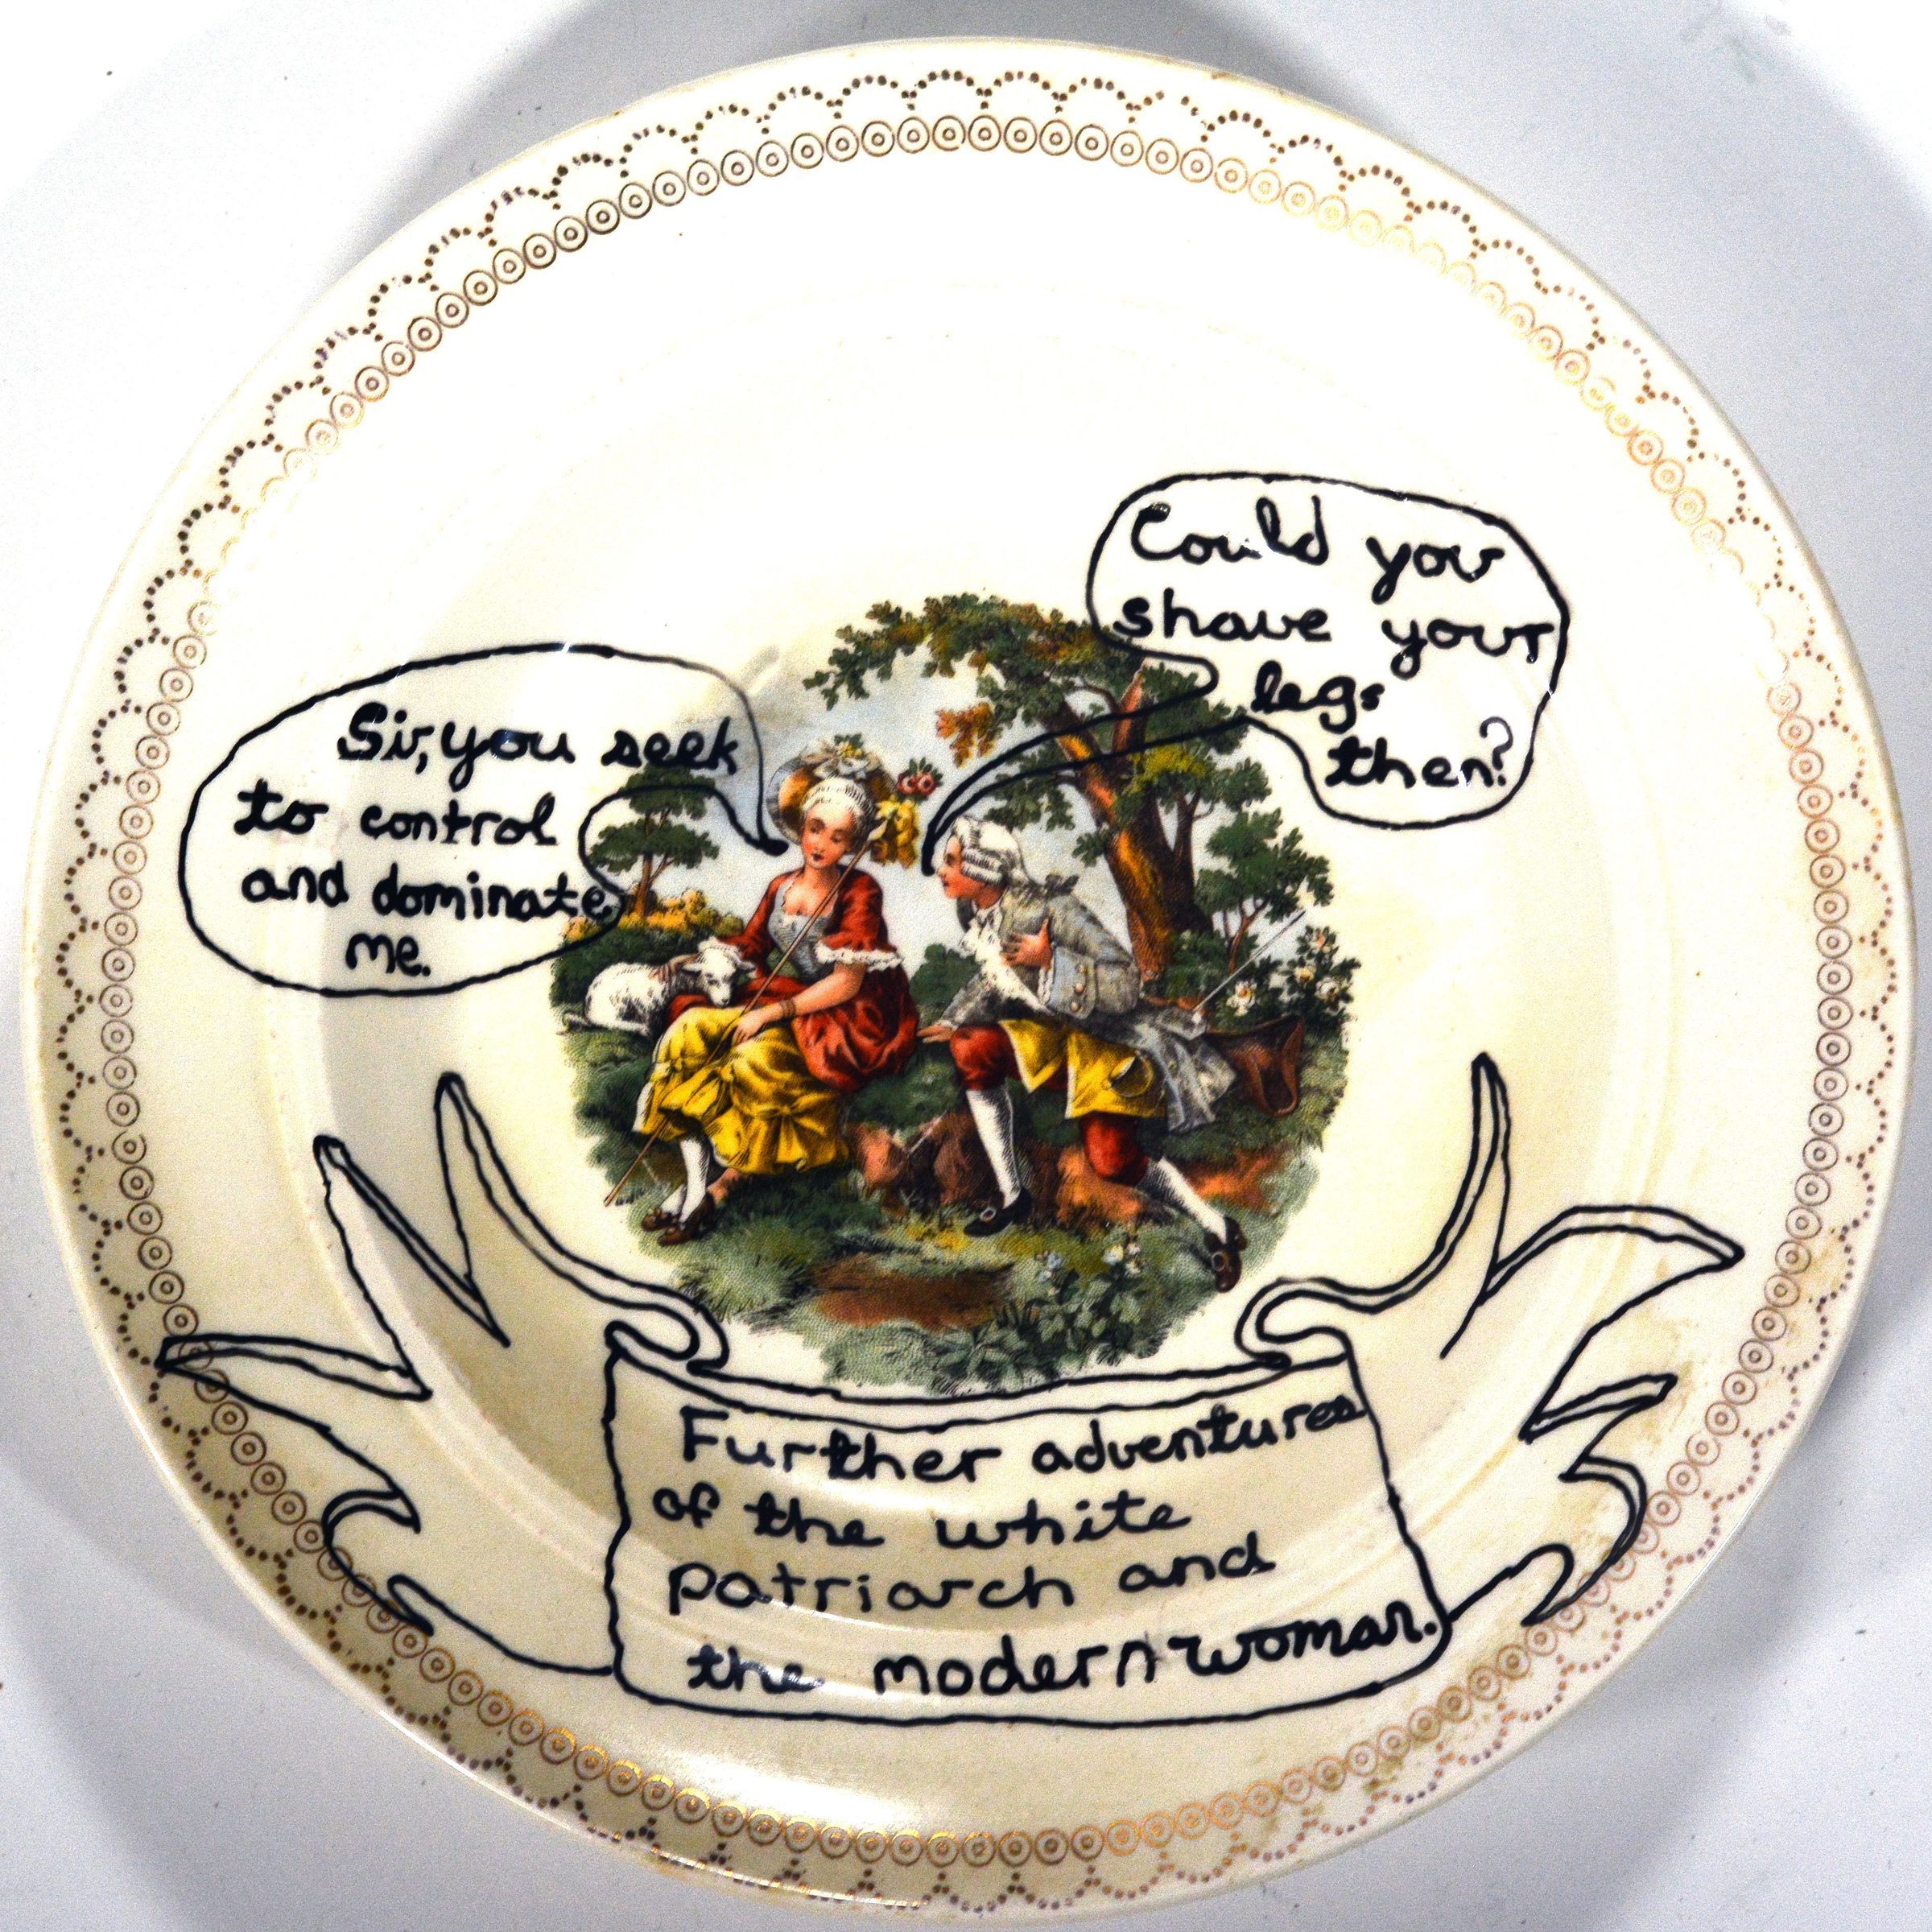 Sir, you seek
to control
and dominate
me.
Could you
shave your
legs
then?
Further adventures
of the white
patriarch and
the modern woman.